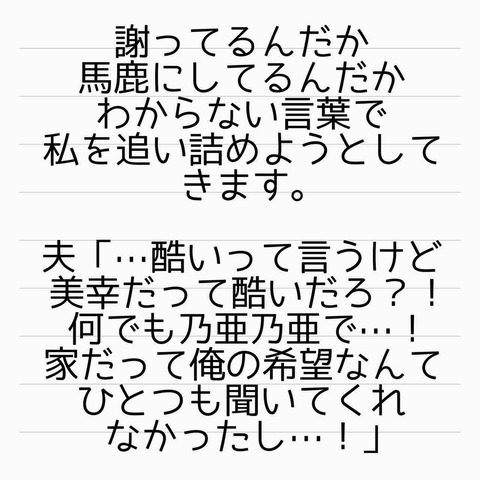 謝ってるんだか
馬鹿にしてるんだか
わからない言葉で
私を追い詰めようとして
きます。
夫「…酷いって言うけど
美幸だって酷いだろ？！
何でも乃亜乃亜で…！
家だって俺の希望なんて
ひとつも聞いてくれ
なかったし…！」